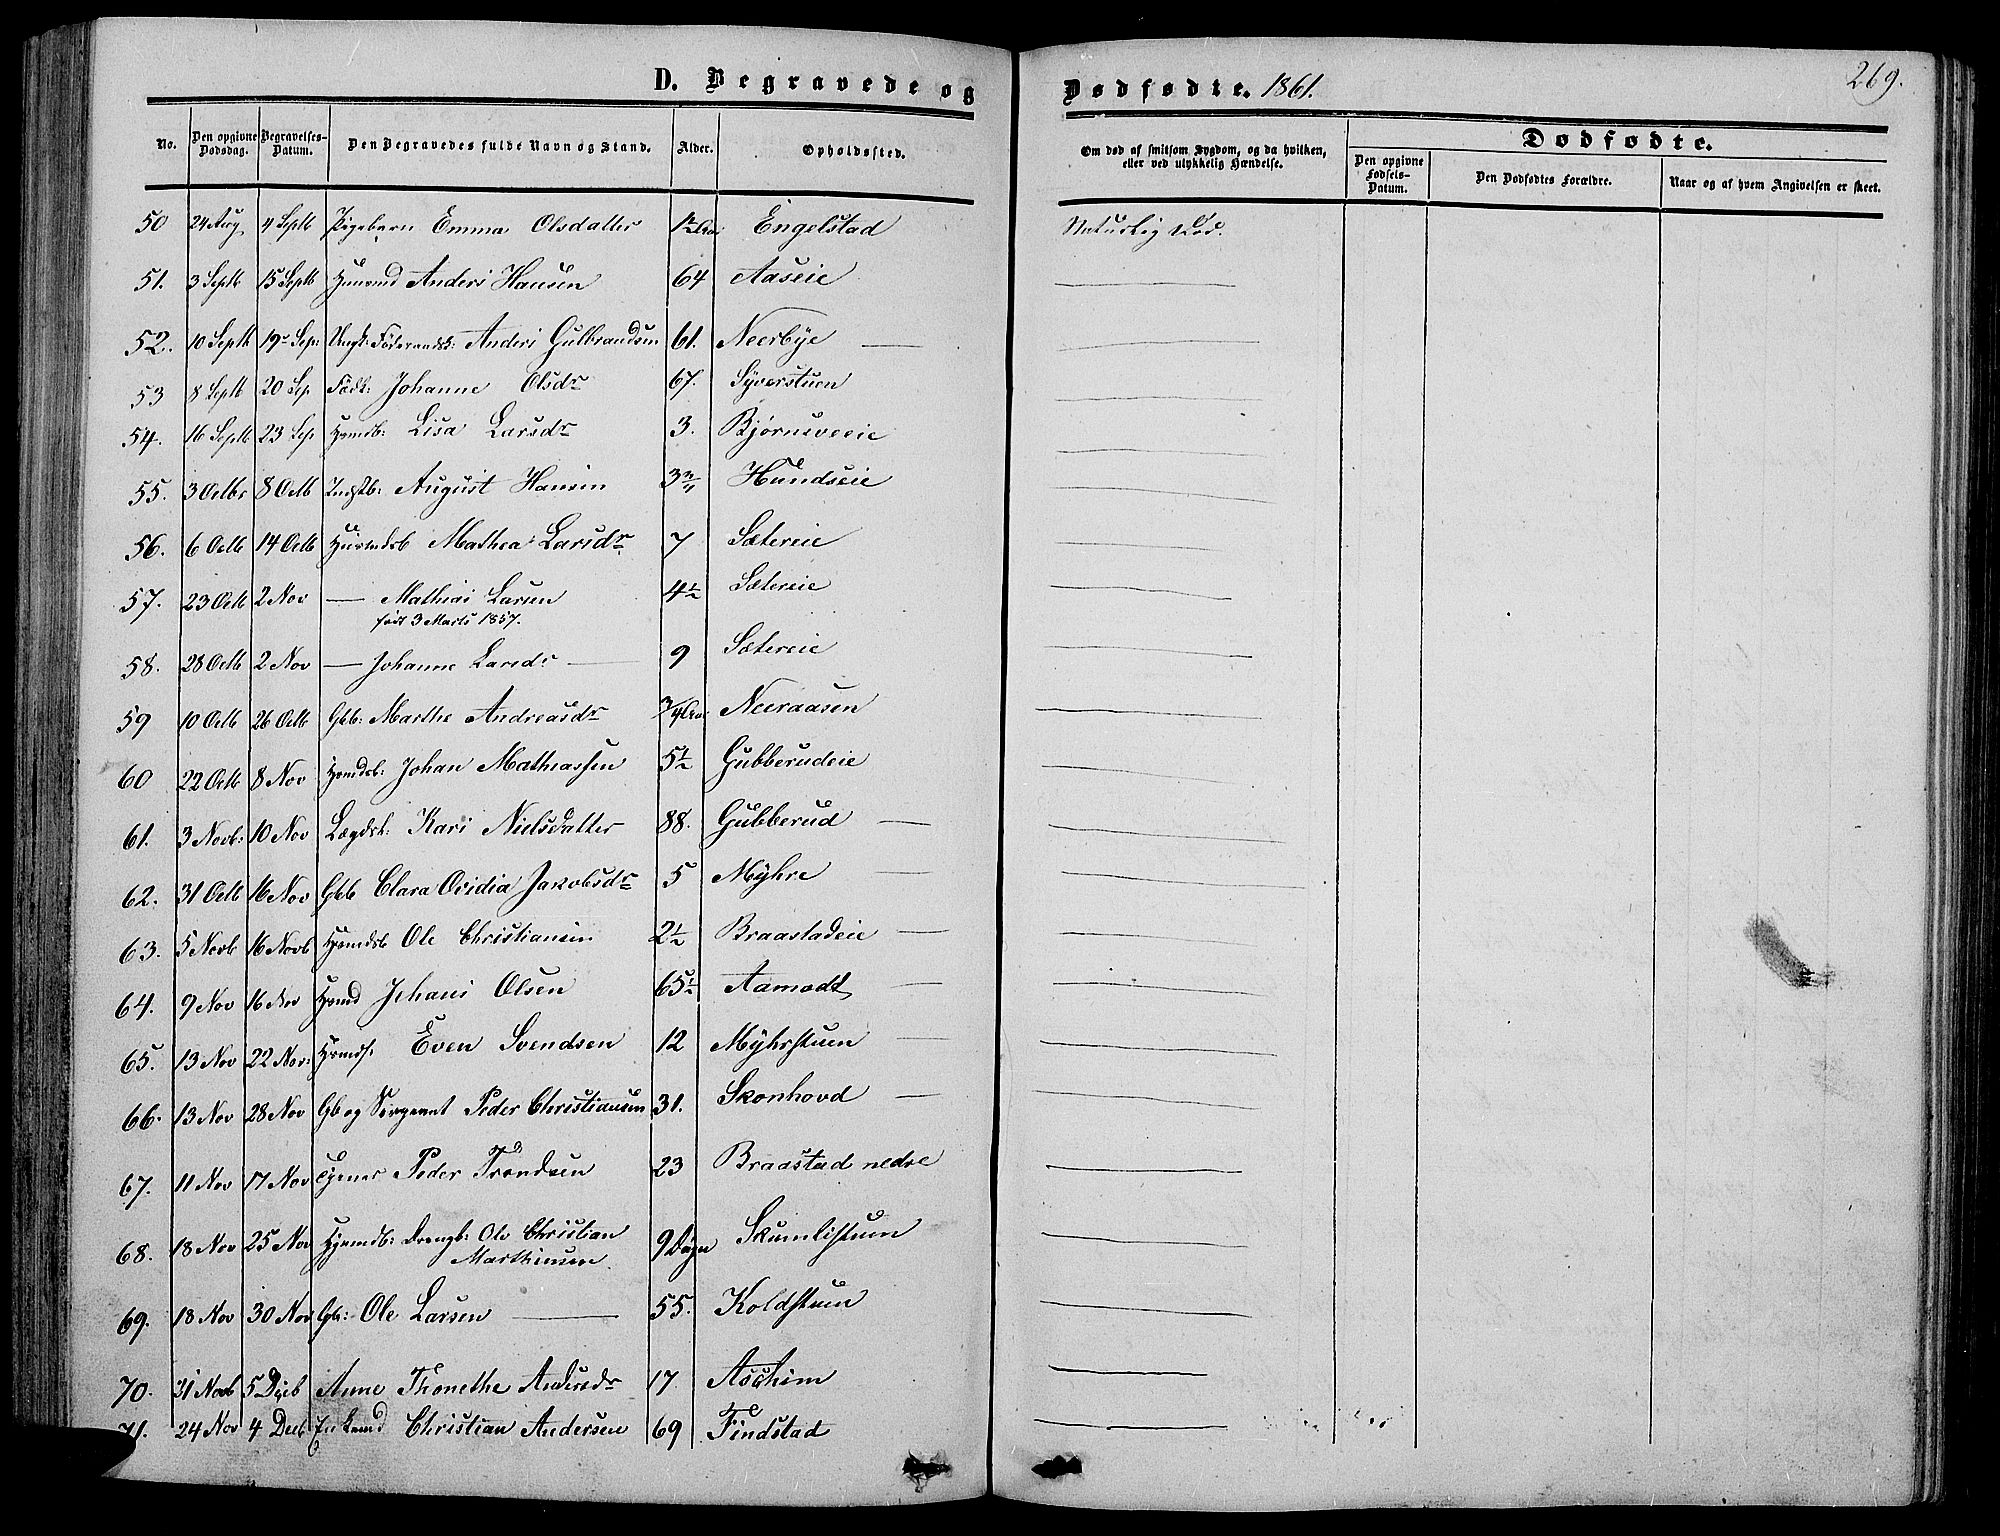 D. Begravede og Dødfødte. 1861. 269.
No. Den opgivne Dødsdag. Begravelses-Datum. Den Begravedes fulde Navn og Stand. Alder. Opholdssted. Om død af smitsom Sygdom, og da hvilken, eller ved ulykkelig Hændelse. Dødfødte.
Den opgivne Fødsels-Datum. Den Dødfødtes Forældre. Naar og af hvem Angivelsen er skeet.
50 24 Aug 4 Septb Pigebarn Emma Olsdatter 1/2 Aar Engelstad Naturlig Død.
51. 3 Septb 15 Septb Huusmd Anders Hansen 64 Aaseie
52. 10 Septb 19 Sep: Ungk: Föderaadsk: Anders Gulbrandsen 61. Neerbye
53 8 Septb 20 Sep Födk: Johanne Olsdr 67. Syverstuen
54. 16 Septb 23 Sep Hsmdsb: Lisa Larsdr 3. Bjørnsveeie
55. 3 Octbr 8 Octb Indstb: August Hansen 3 3/4 Hundseie
56. 6 Octb 14 Octb Huusmdsb Mathea Larsdr 7 Sætereie
57. 23 Octb 2 Nov — Mathias Larsen 4 1/2 Sætereie
født 3 Marts 1857.
58. 28 Octb 2 Nov — Johanne Larsdr — 9 Sætereie
59 10 Octb 26 Octb Gbb: Marthe Andreasdr 3/4 Aar Neeraasen
60 22 Octb 8 Nov Hsmdsb: Johan Mathiassen 5 1/2 Gubberudeie
61. 3 Novb: 10 Nov Lægdsl: Kari Nielsdatter 88. Gubberud
62. 31 Octb 16 Nov Gbb Clara Ovidia Jakobsdr 5 Myhre
63. 5 Novb 16 Novb Hsmdsb Ole Christiansen 2 1/2 Braastadeie
64. 9 Nov 16 Nov Hsmd Johans Olsen 65 1/2 Aamodt
65. 13 Nov 22 Nov: Hsmds. Even Svendsen 12 Myhrstuen
66. 13 Nov 28 Nov Gb og Sergeant Peder Christiansen 31. Skonhovd
67. 11 Nov 17 Nov Tjener Peder Trondsen 23 Braastad nedre
68. 18 Nov 25 Nov Hsmdb: Drengb: Ole Christian 9 Dage Skumlistuen
Marthinsen
69. 18 Nov 30 Nov Gb: Ole Larsen 55. Koldstuen
70. 21 Novb 5 Deb Anne Thonethe Andersdr 17 Aschim
71. 24 Nov 4 Decb Christian Andersen 69 Findstad